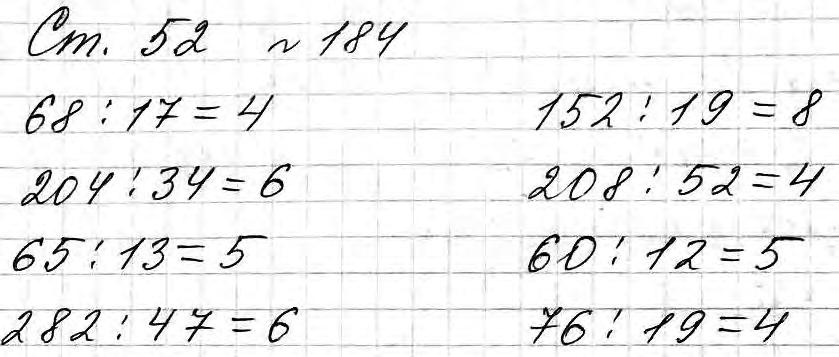 Ст. 52 ~ 184
68 : 17 = 4 152 : 19 = 8
204 : 34 = 6 208 : 52 = 4
65 : 13 = 5 60 : 12 = 5
282 : 47 = 6 76 : 19 = 4